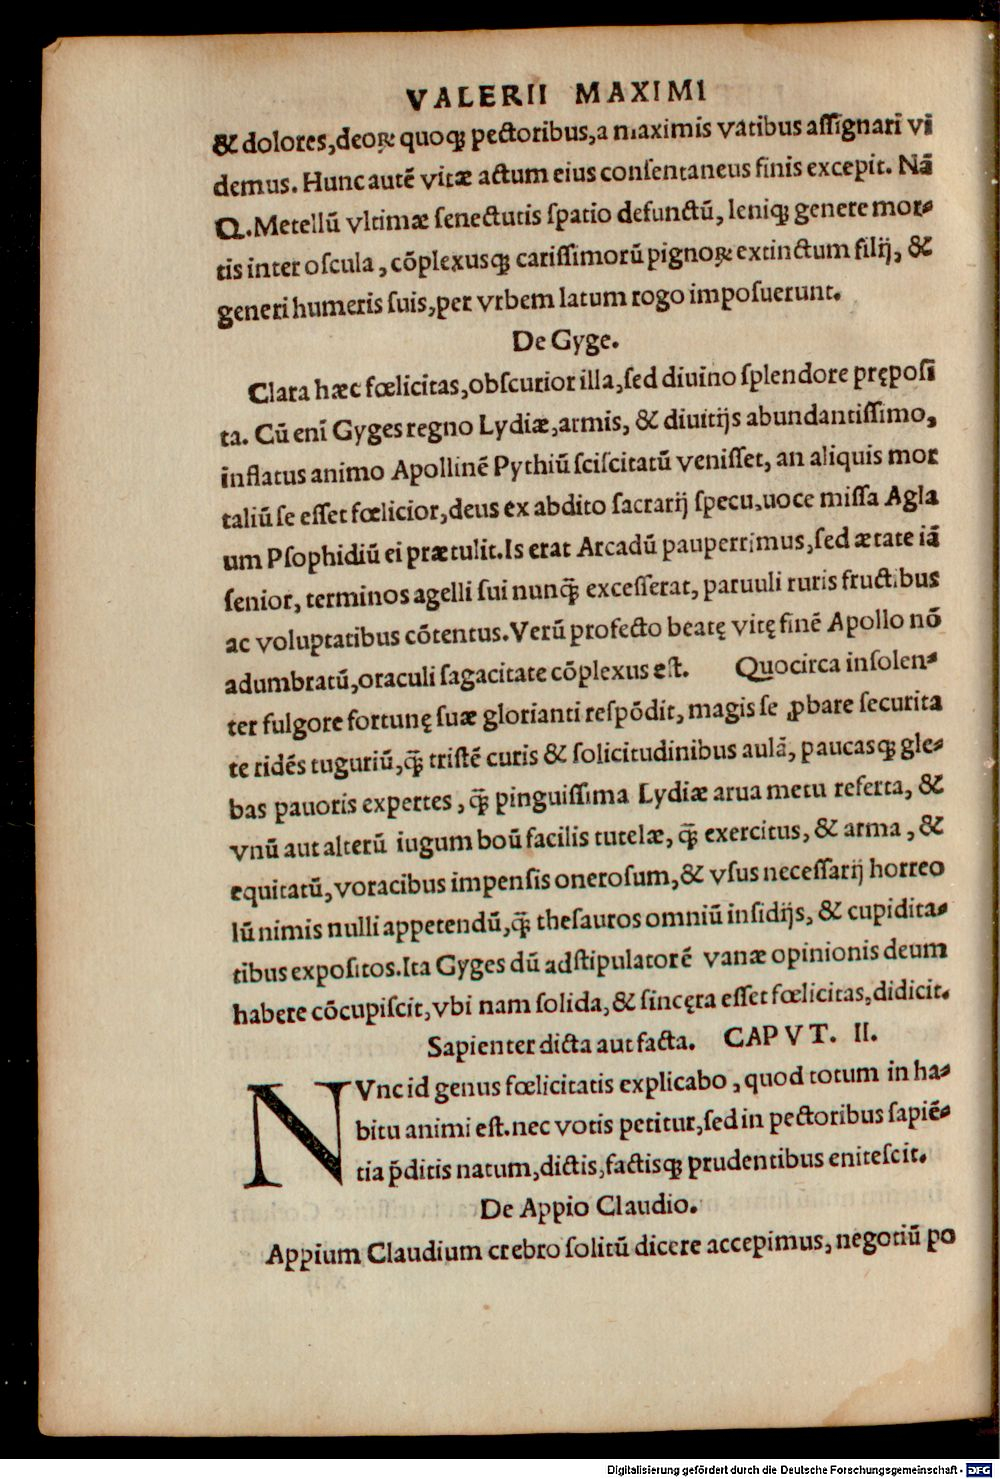 VALERII MAXIMI
& dolores,deoꝝ quoqꝫ pectoribus,a maximis vatibus aſſignari vi
demus. Hunc autē vitæ actum eius conſentaneus finis excepit. Nā
Q.Metellū vltimæ ſenectutis ſpatio defunctū, leniqꝫ genere mor⸗
tis inter oſcula, cōplexusqꝫ cariſſimorū pignoꝝ extinctum filij, &
generi humeris ſuis,per vrbem latum rogo impoſuerunt.
De Gyge.
Clara hæc fœlicitas,obſcurior illa,ſed diuino ſplendore prępoſi
ta. Cū enī Gyges regno Lydiæ,armis, & diuitijs abundantiſſimo,
inflatus animo Apollinē Pythiū ſciſcitatū veniſſet, an aliquis mor
taliū ſe eſſet fœlicior,deus ex abdito ſacrarij ſpecu,uoce miſſa Agla
um Pſophidiū ei prætulit.Is erat Arcadū pauperrimus,ſed ætate iā
ſenior, terminos agelli ſui nunq̄ exceſſerat, paruuli ruris fructibus
ac voluptatibus cōtentus.Verū profecto beatę vitę finē Apollo nō
adumbratū,oraculi ſagacitate cōplexus eſt. Quocirca inſolen⸗
ter fulgore fortunę ſuæ glorianti reſpōdit, magis ſe ꝓbare ſecurita
te ridēs tuguriū,q̄ triſtē curis & ſolicitudinibus aulā, paucasqꝫ gle⸗
bas pauoris expertes, q̄ pinguiſſima Lydiæ arua metu referta, &
vnū aut alterū iugum boū facilis tutelæ, q̄ exercitus, & arma, &
equitatū,voracibus impenſis oneroſum,& vſus neceſſarij horreo
lū nimis nulli appetendū,q̄ theſauros omniū inſidijs, & cupidita⸗
tibus expoſitos.Ita Gyges dū adſtipulatorē vanæ opinionis deum
habere cōcupiſcit,vbi nam ſolida,& ſincęra eſſet fœlicitas,didicit.
Sapienter dicta aut facta. CAPVT. II.
NVnc id genus fœlicitatis explicabo, quod totum in ha⸗
bitu animi eſt.nec votis petitur,ſed in pectoribus ſapiē⸗
tia p̄ditis natum,dictis,factisqꝫ prudentibus eniteſcit.
De Appio Claudio.
Appium Claudium crebro ſolitū dicere accepimus, negotiū po
Digitalisierung gefördert durch die Deutsche Forschungsgemeinschaft - DFG